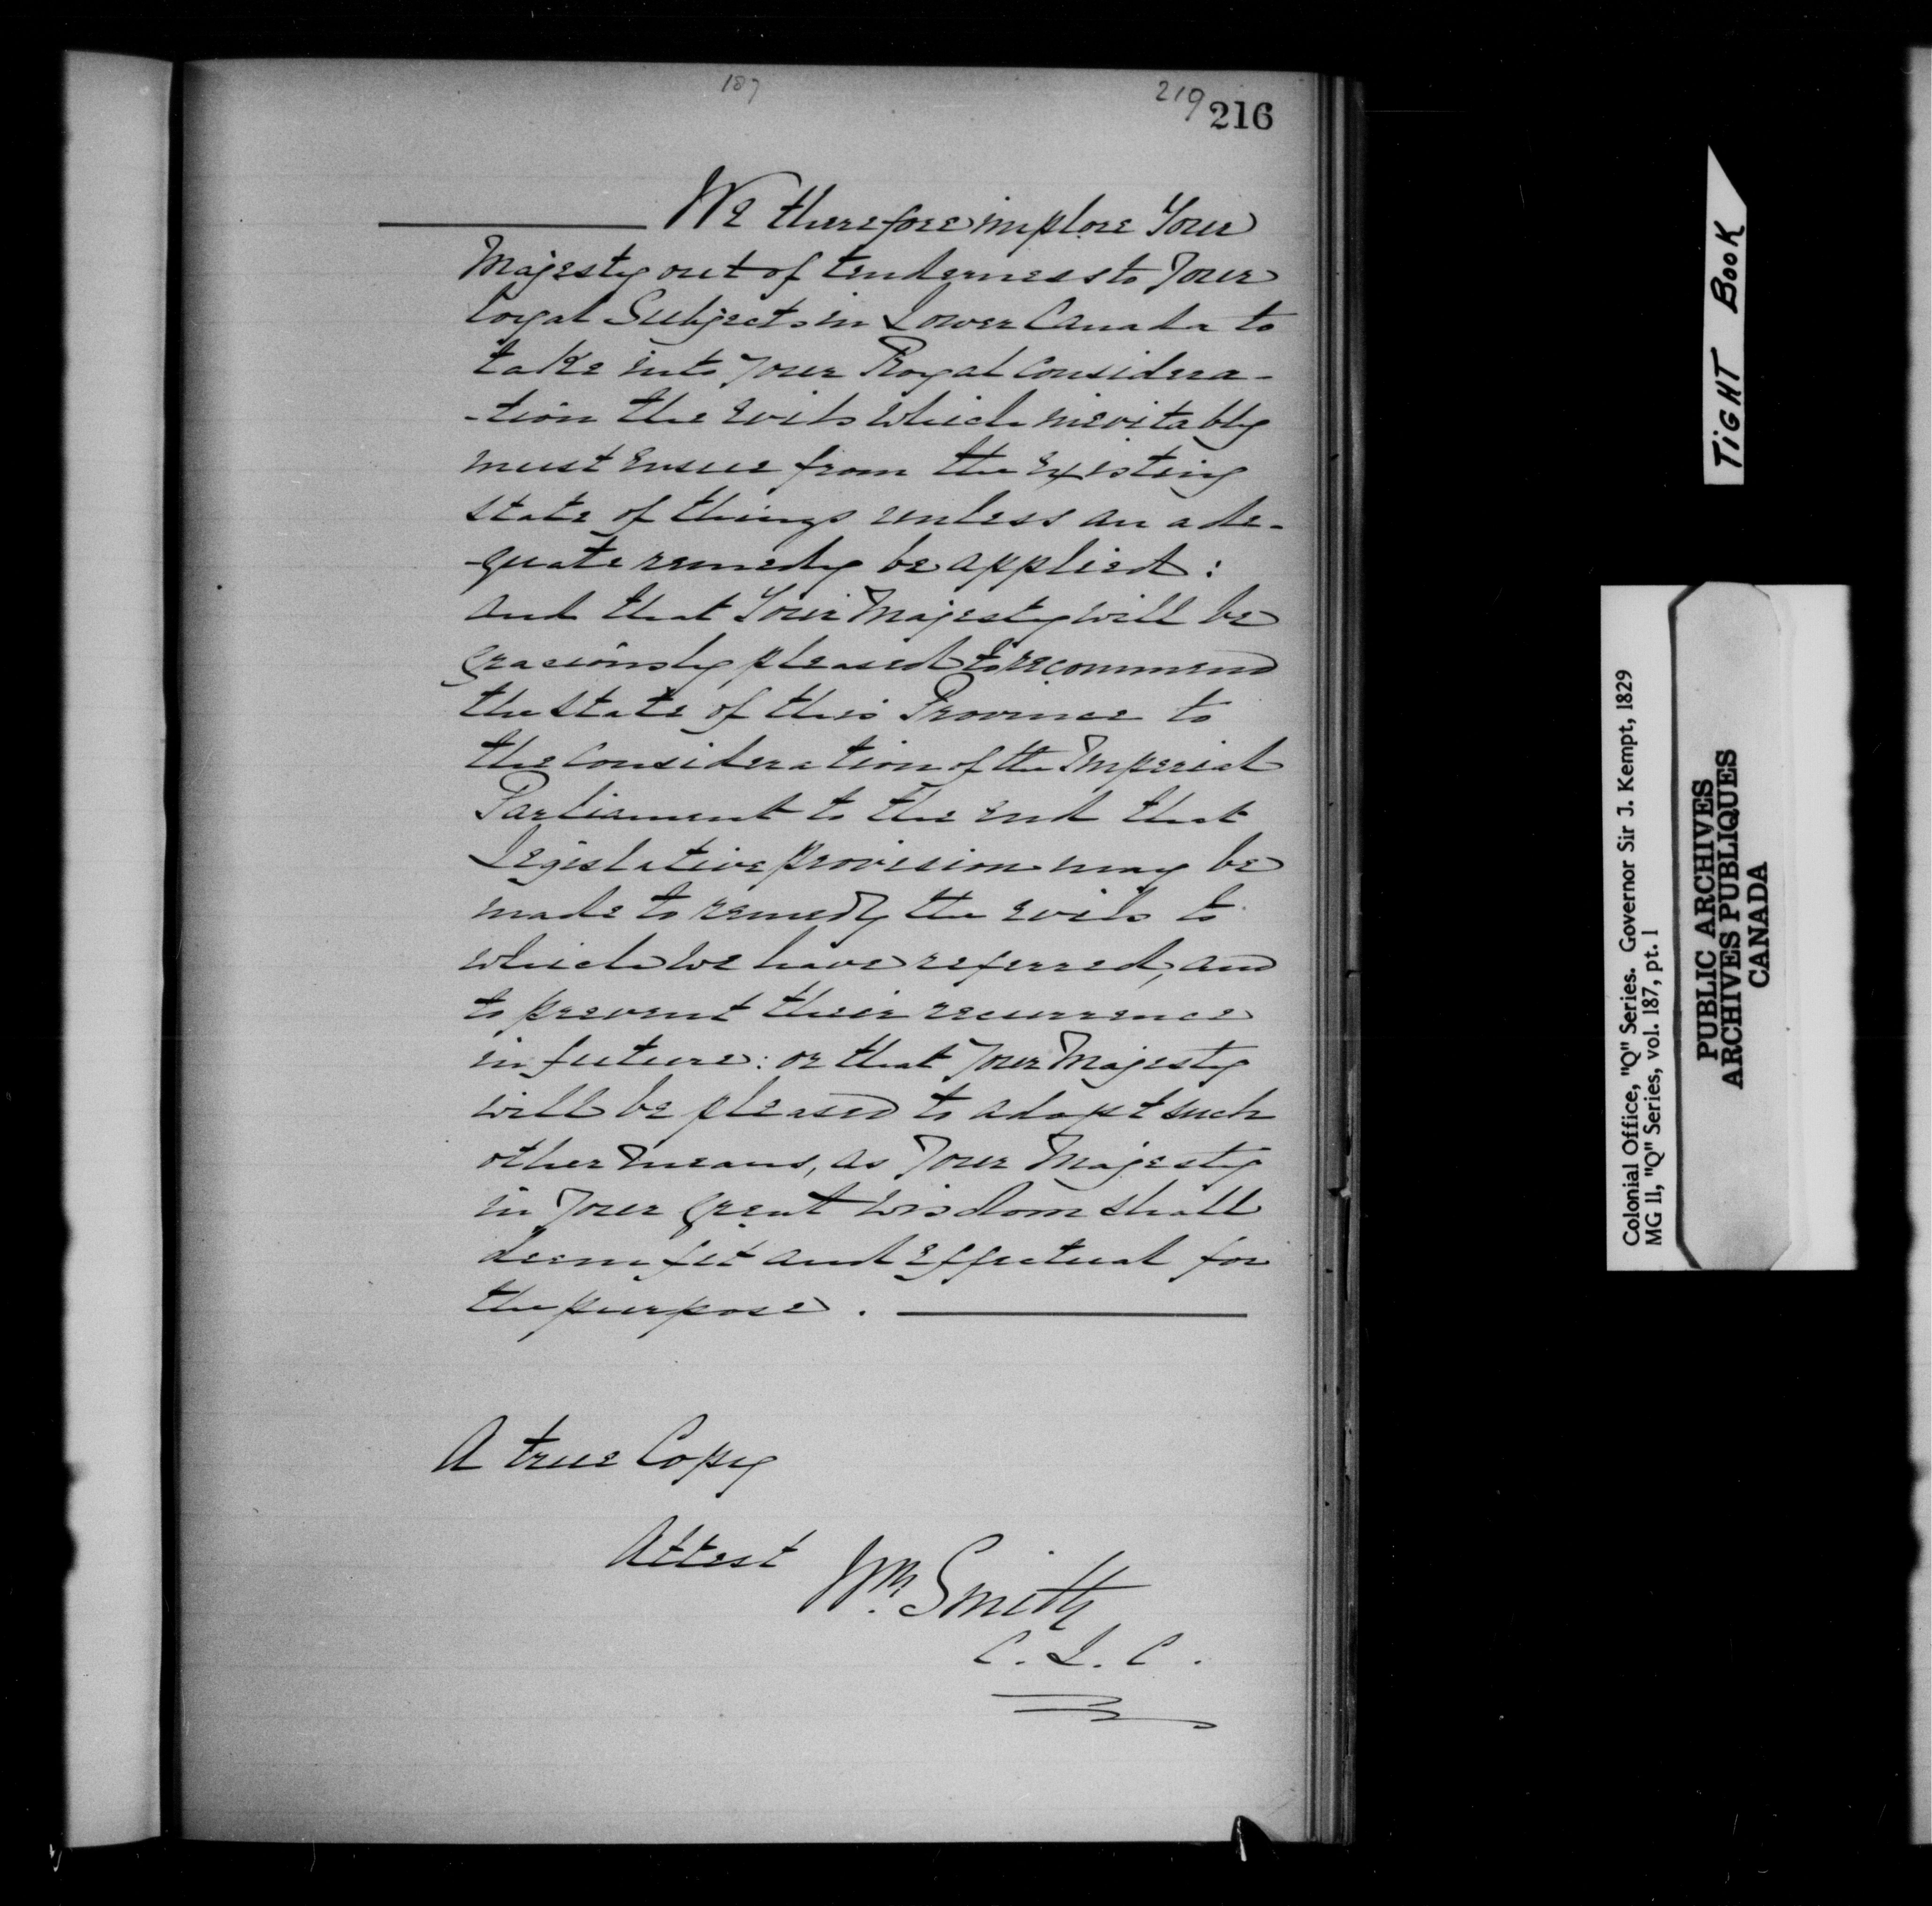 187
219
216
We therefore implore Your
Majesty out of tenderness to Your
loyal Subjects in Lower Canada to
take into Your Royal Considera-
-tion the evils which inevitably
must ensue from the existing
state of things unless an ade-
-quate remedy be applied:
and that Your Majesty will be
graciously pleased to recommend
the state of this Province to
the Consideration of the Imperial
Parliament to the end that
Legislative provision may be
made to remedy the evils to
which we have referred, and
to prevent their recurrence
in future: or that Your Majesty
will be pleased to adopt such
other means, as Your Majesty
in Your great wisdom shall
deem fit and effectual for
the purpose.
A true Copy
Attest
Wm. Smith
C. L. C.
TIGHT BOOK
Colonial Office, "Q" Series. Governor Sir J. Kempt, 1829
MG 11, "Q" Series, vol. 187, pt. 1
PUBLIC ARCHIVES
ARCHIVES PUBLIQUES
CANADA